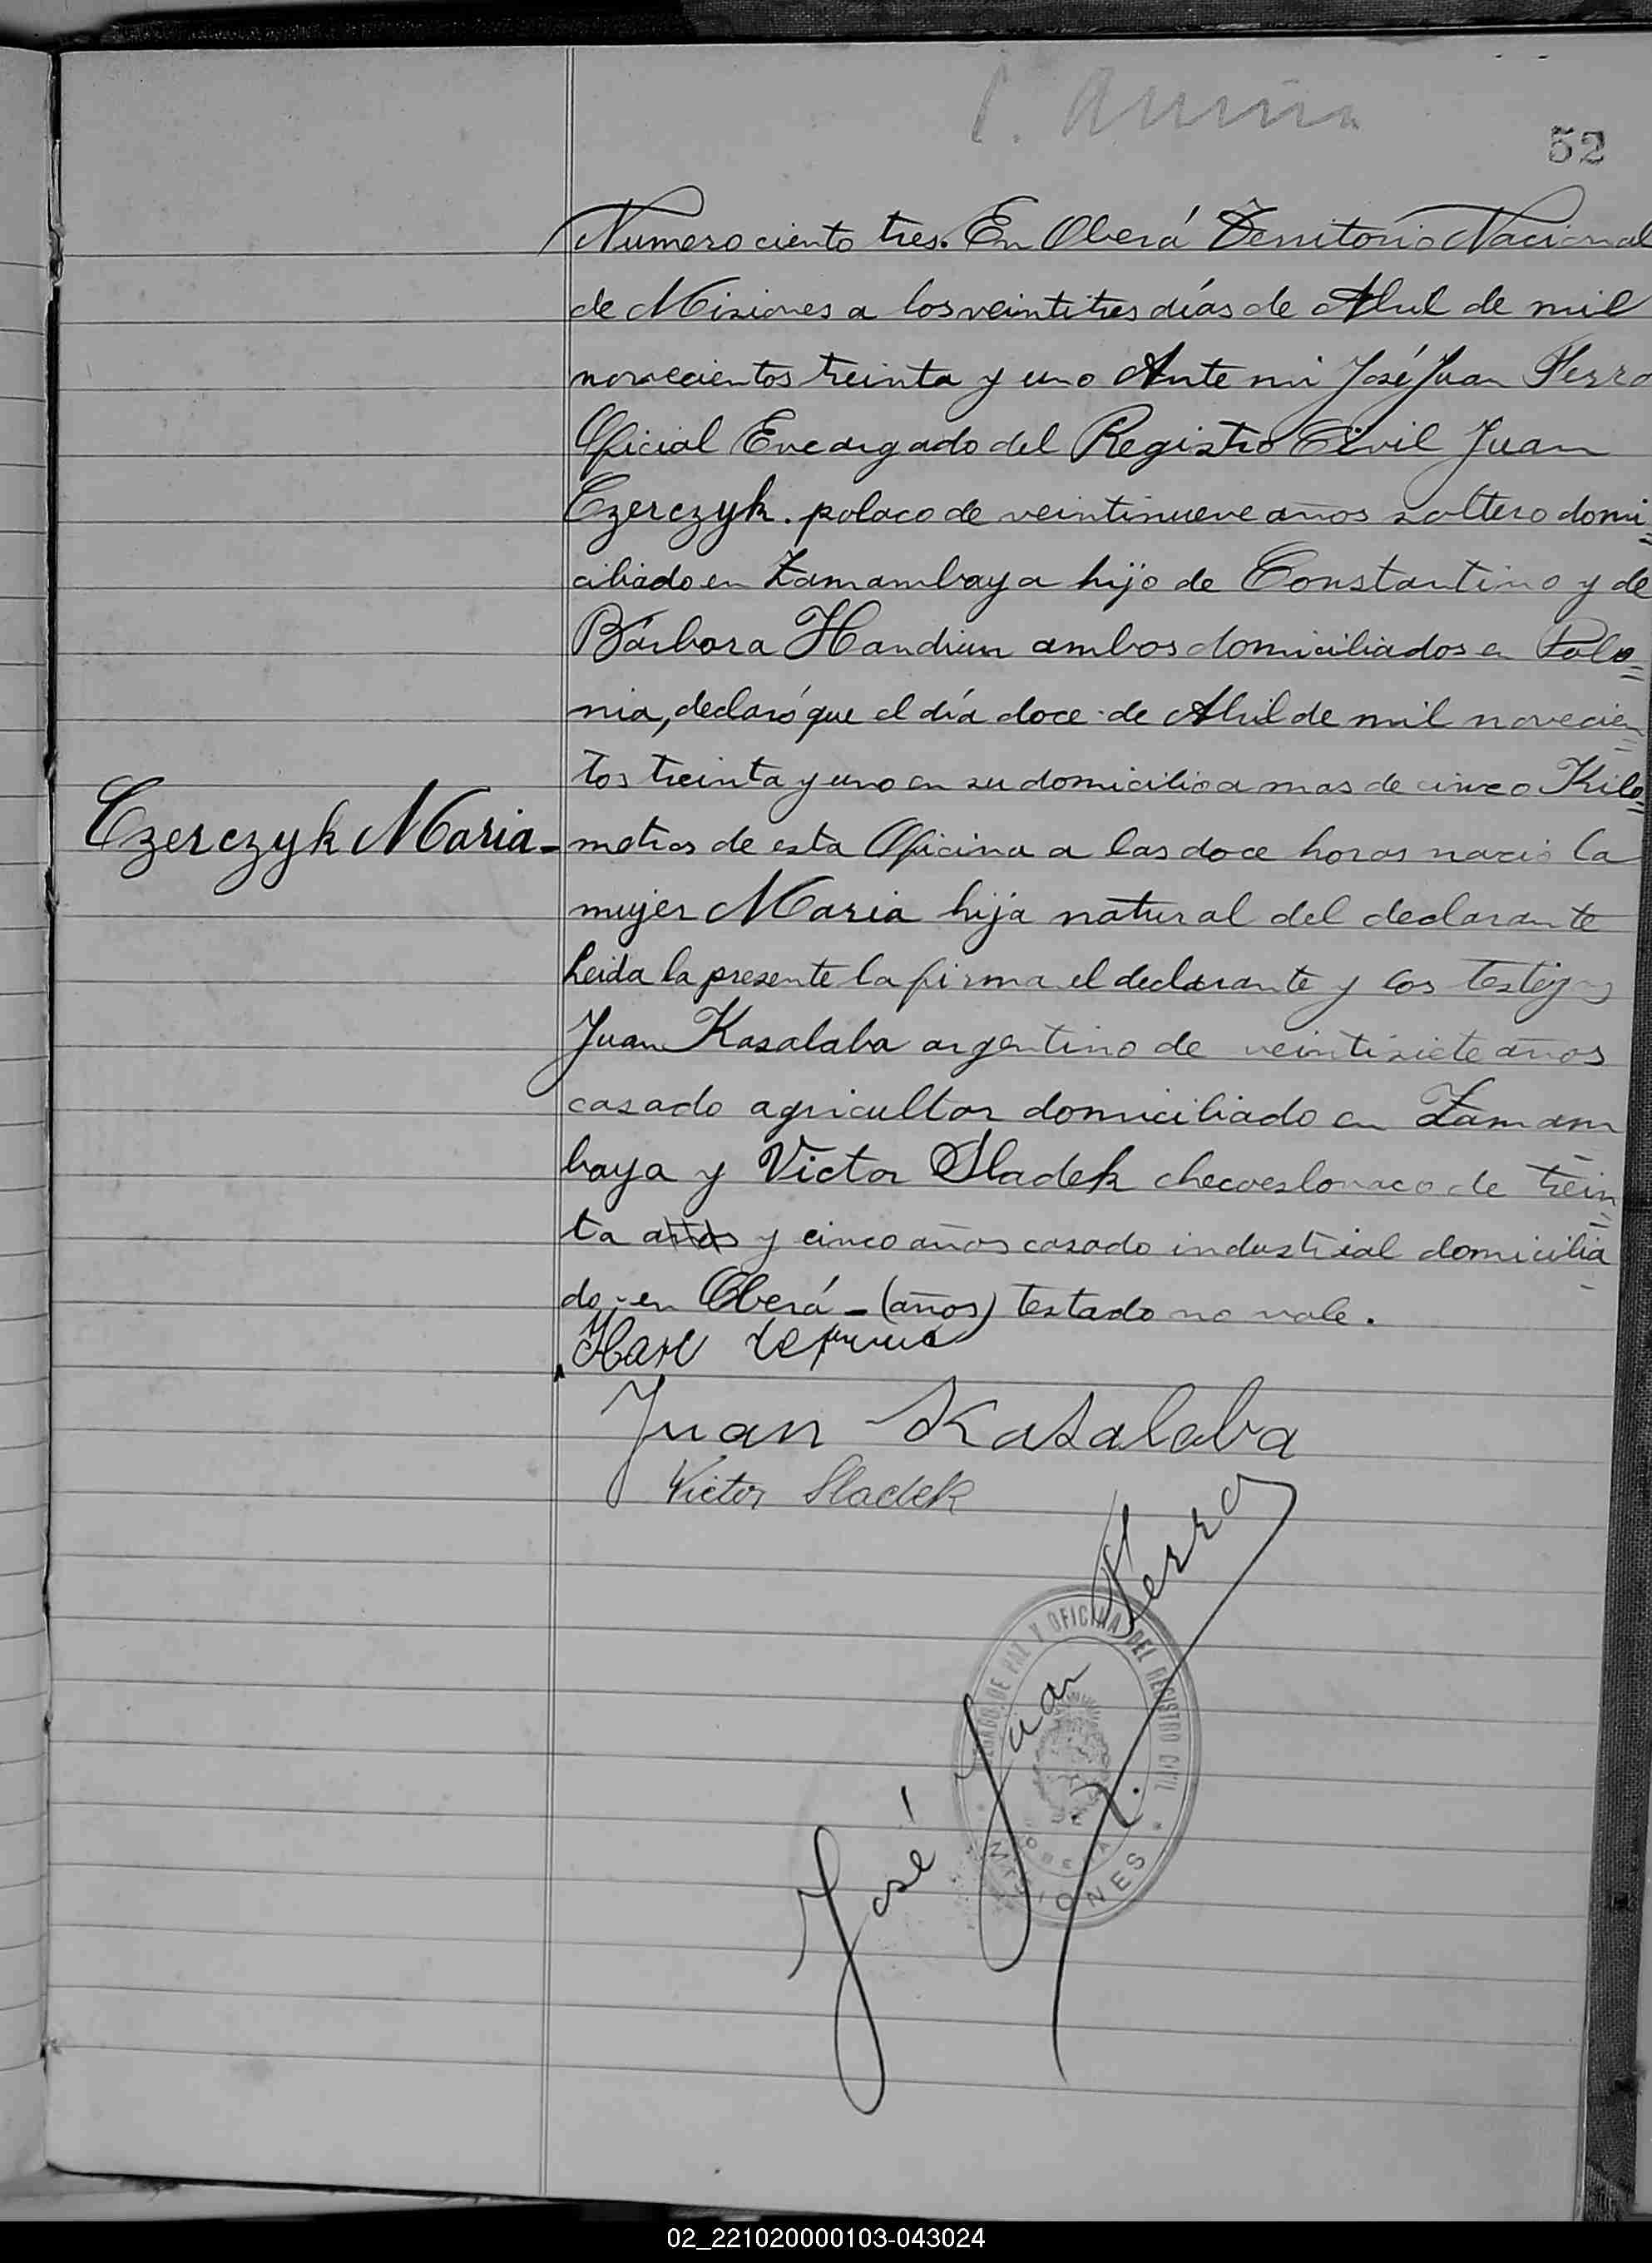 52
Numero ciento tres. En Oberá Territorio Nacional
de Misiones a los veintitres días de Abril de mil
novecientos treinta y uno Ante mi José Juan Ferro
Oficial Encargado del Registro Civil Juan
Czerczyk. polaco de veintinueve años soltero domi=
ciliado en Zamambaya hijo de Constantino y de
Bárbara Handiun ambos domiciliados en Polo=
nia, declaró que el día doce de Abril de mil novecien=
tos treinta y uno en su domicilio a mas de cinco Kilo=
Czerczyk Maria- metros de esta Oficina a las doce horas nació la
mujer Maria hija natural del declarante
Leida la presente la firma el declarante y los testigos
Juan Kasalaba argentino de veintisiete años
casado agricultor domiciliado en Zamam-
baya y Victor Sladek checoeslovaco de trein=
ta años y cinco años casado industrial domicilia-
do en Oberá - (años) testado no vale.
Juan Kasalaba
Victor Sladek
José Juan Ferro
JUZGADO DE PAZ Y OFICINA DEL REGISTRO CIVIL
OBERA
MISIONES
02_221020000103-043024